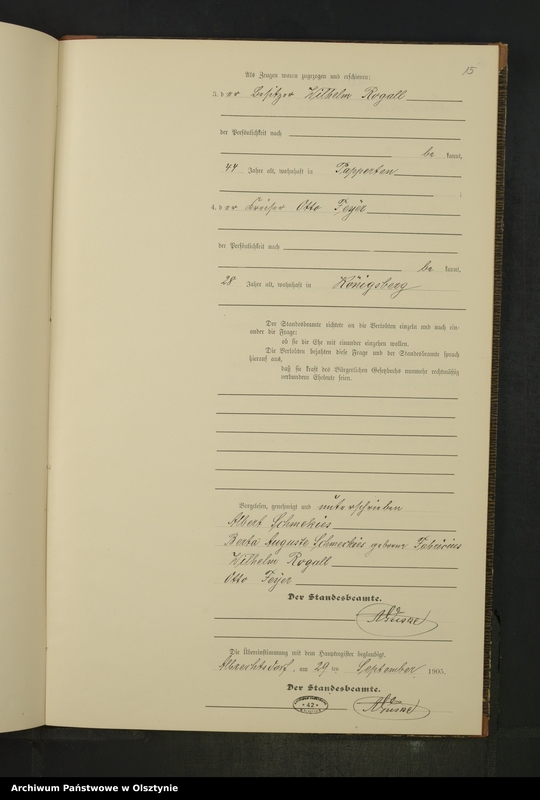 15
Als Zeugen waren zugezogen und erschienen:
3. der Besitzer Wilhelm Rogall
der Persönlichkeit nach
be kannt,
44 Jahre alt, wohnhaft in Papperten
;
4. der Otto Feyer
der Persönlichkeit nach
be kannt,
28 Jahre alt, wohnhaft in Königsberg
Der Standesbeamte richtete an die Verlobten einzeln und nach ein-
ander die Frage:
ob sie die Ehe mit einander eingehen wollen.
Die Verlobten bejahten diese Frage und der Standesbeamte sprach
hierauf aus,
daß sie kraft des Bürgerlichen Gesetzbuchs nunmehr rechtmäßig
verbundene Eheleute seien.
Vorgelesen, genehmigt und unterschrieben
Albert Schmekies
Berta Auguste Schmeckies geborene Fabricius
Wilhelm Rogall
Otto Feyer
Der Standesbeamte.
Die Übereinstimmung mit dem Hauptregister beglaubigt.
Albrechtsdorf, am 29 ten September 1905.
Der Standesbeamte.
* 42 *
Archiwum Państwowe w Olsztynie